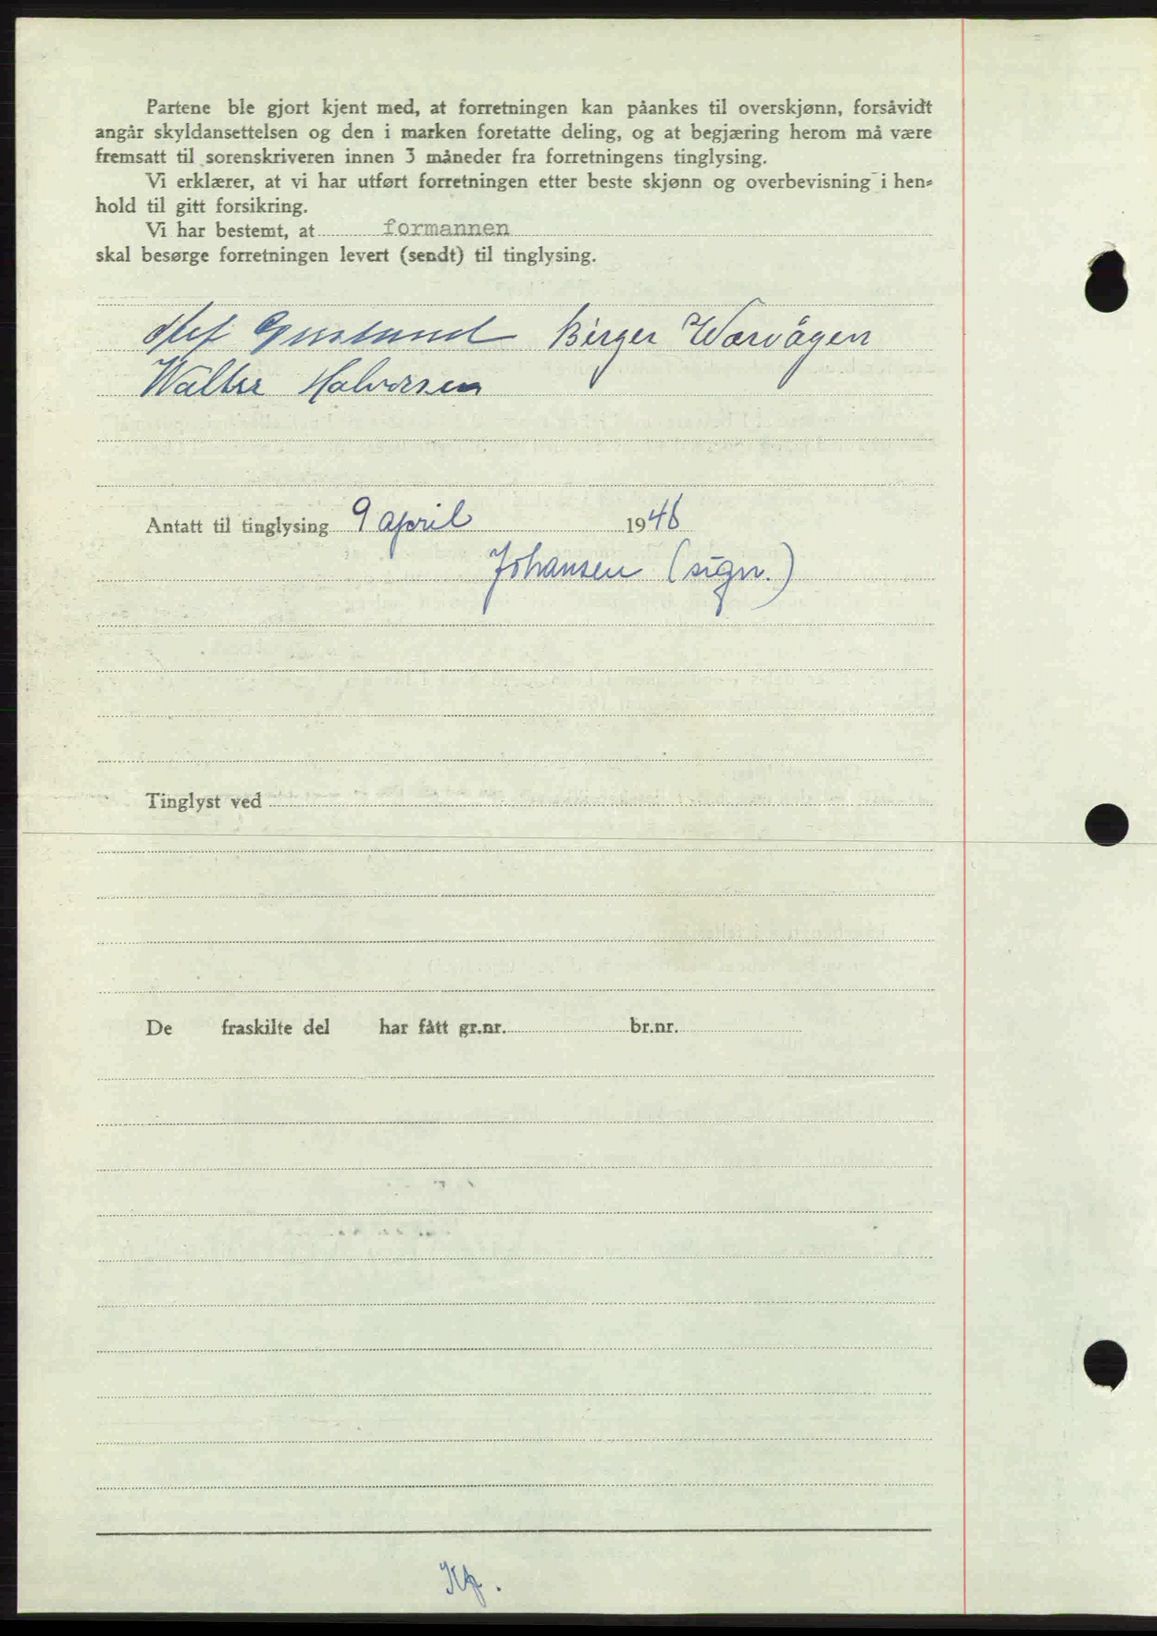 Partene ble gjort kjent med, at forretningen kan påankes til overskjønn, forsåvidt
angår skyldansettelsen og den i marken foretatte deling, og at begjæring herom må være
fremsatt til sorenskriveren innen 3 måneder fra forretningens tinglysing.
Vi erklærer, at vi har utført forretningen etter beste skjønn og overbevisning i hen-
hold til gitt forsikring.
Vi har bestemt, at formannen
skal besørge forretningen levert (sendt) til tinglysing.
Birger Wærvågen
Walter Halvorsen
Antatt til tinglysing 9 april 1946
Johansen (sign.)
Tinglyst ved
De fraskilte del har fått gr.nr. br.nr.